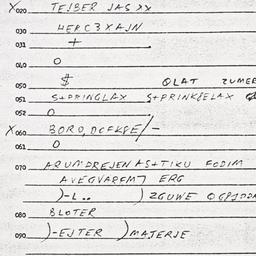 X020 TEJBER JAS XX
030 HERC3XAJN
031 +
040 O
050 $ OLAT ZUMER
051 S+PRINGLAX S+PRINKSELAX
052 O
X060 BORD, DCFKSE/-
061 O
070 ARUM'DREJEN AS+TIKU FODIM
AVEGVAREMT ERG
)-L.. )ZGUWE
080 BLOTER
090 )-EJTER )MATERJE